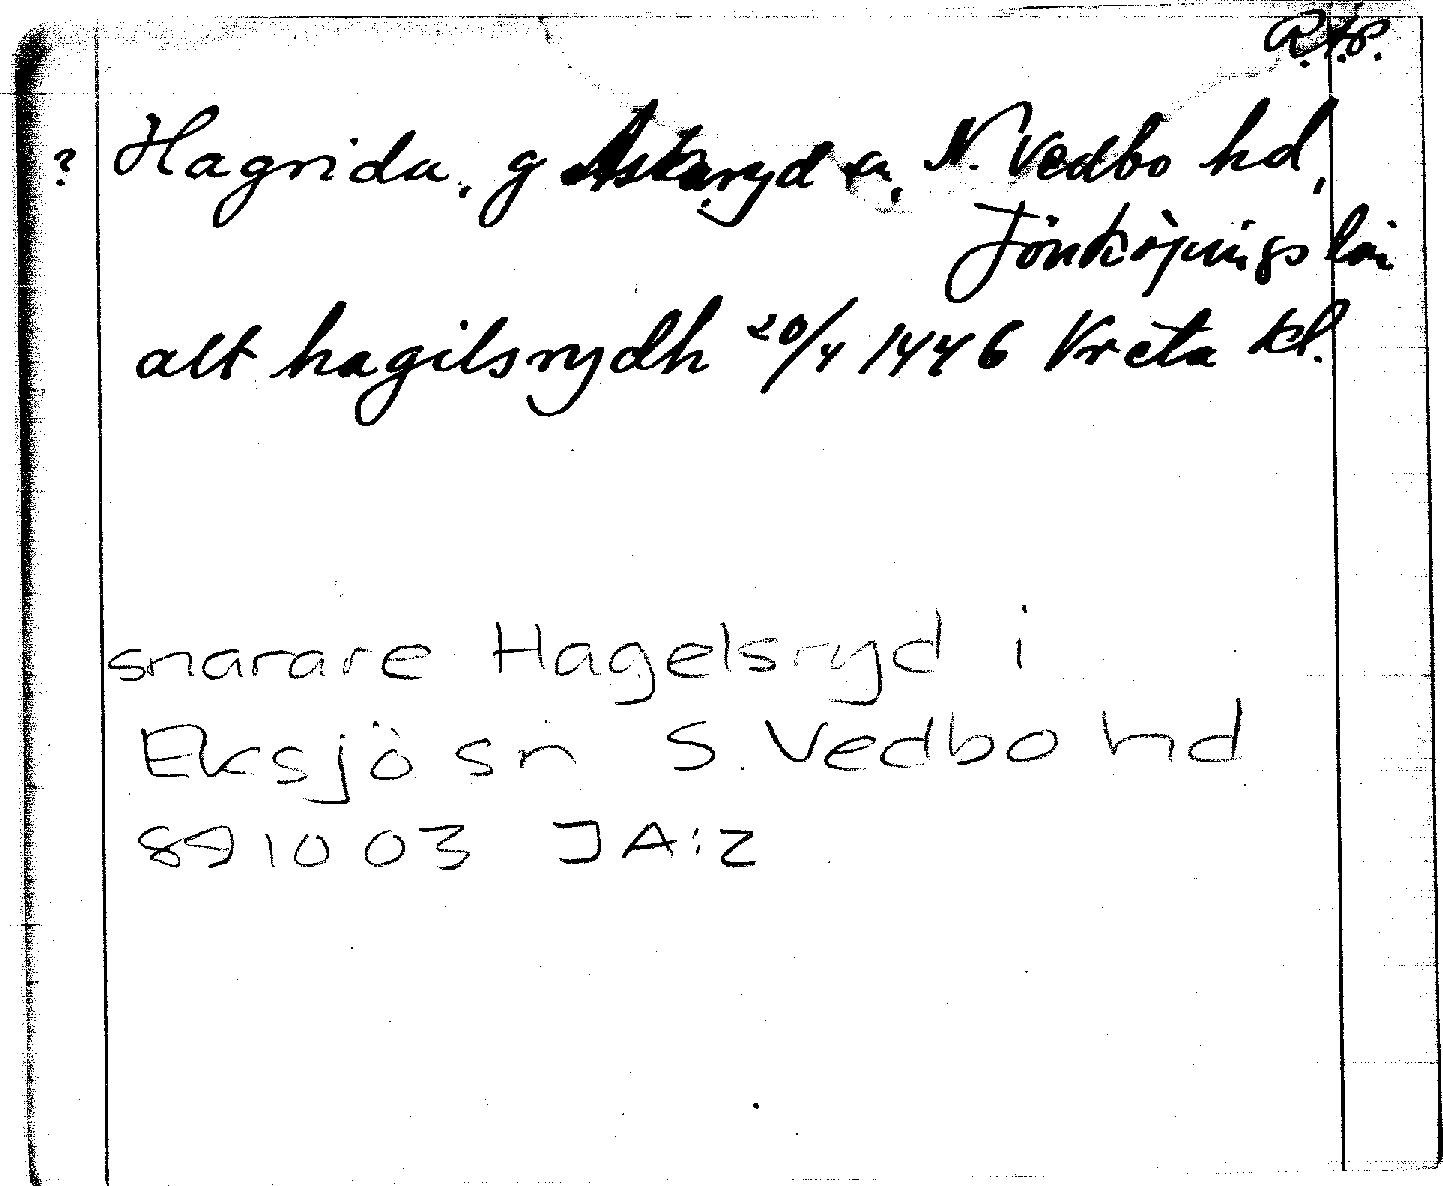 R.A.P.
? Hagrida, g Askeryd sn, N. Vedbo hd,
Jönköpings län
alt hagilsrydh 20/4 1446 Vreta kl.
snarare Hagelsryd i
Eksjö sn S. Vedbo hd
891003 JA:Z